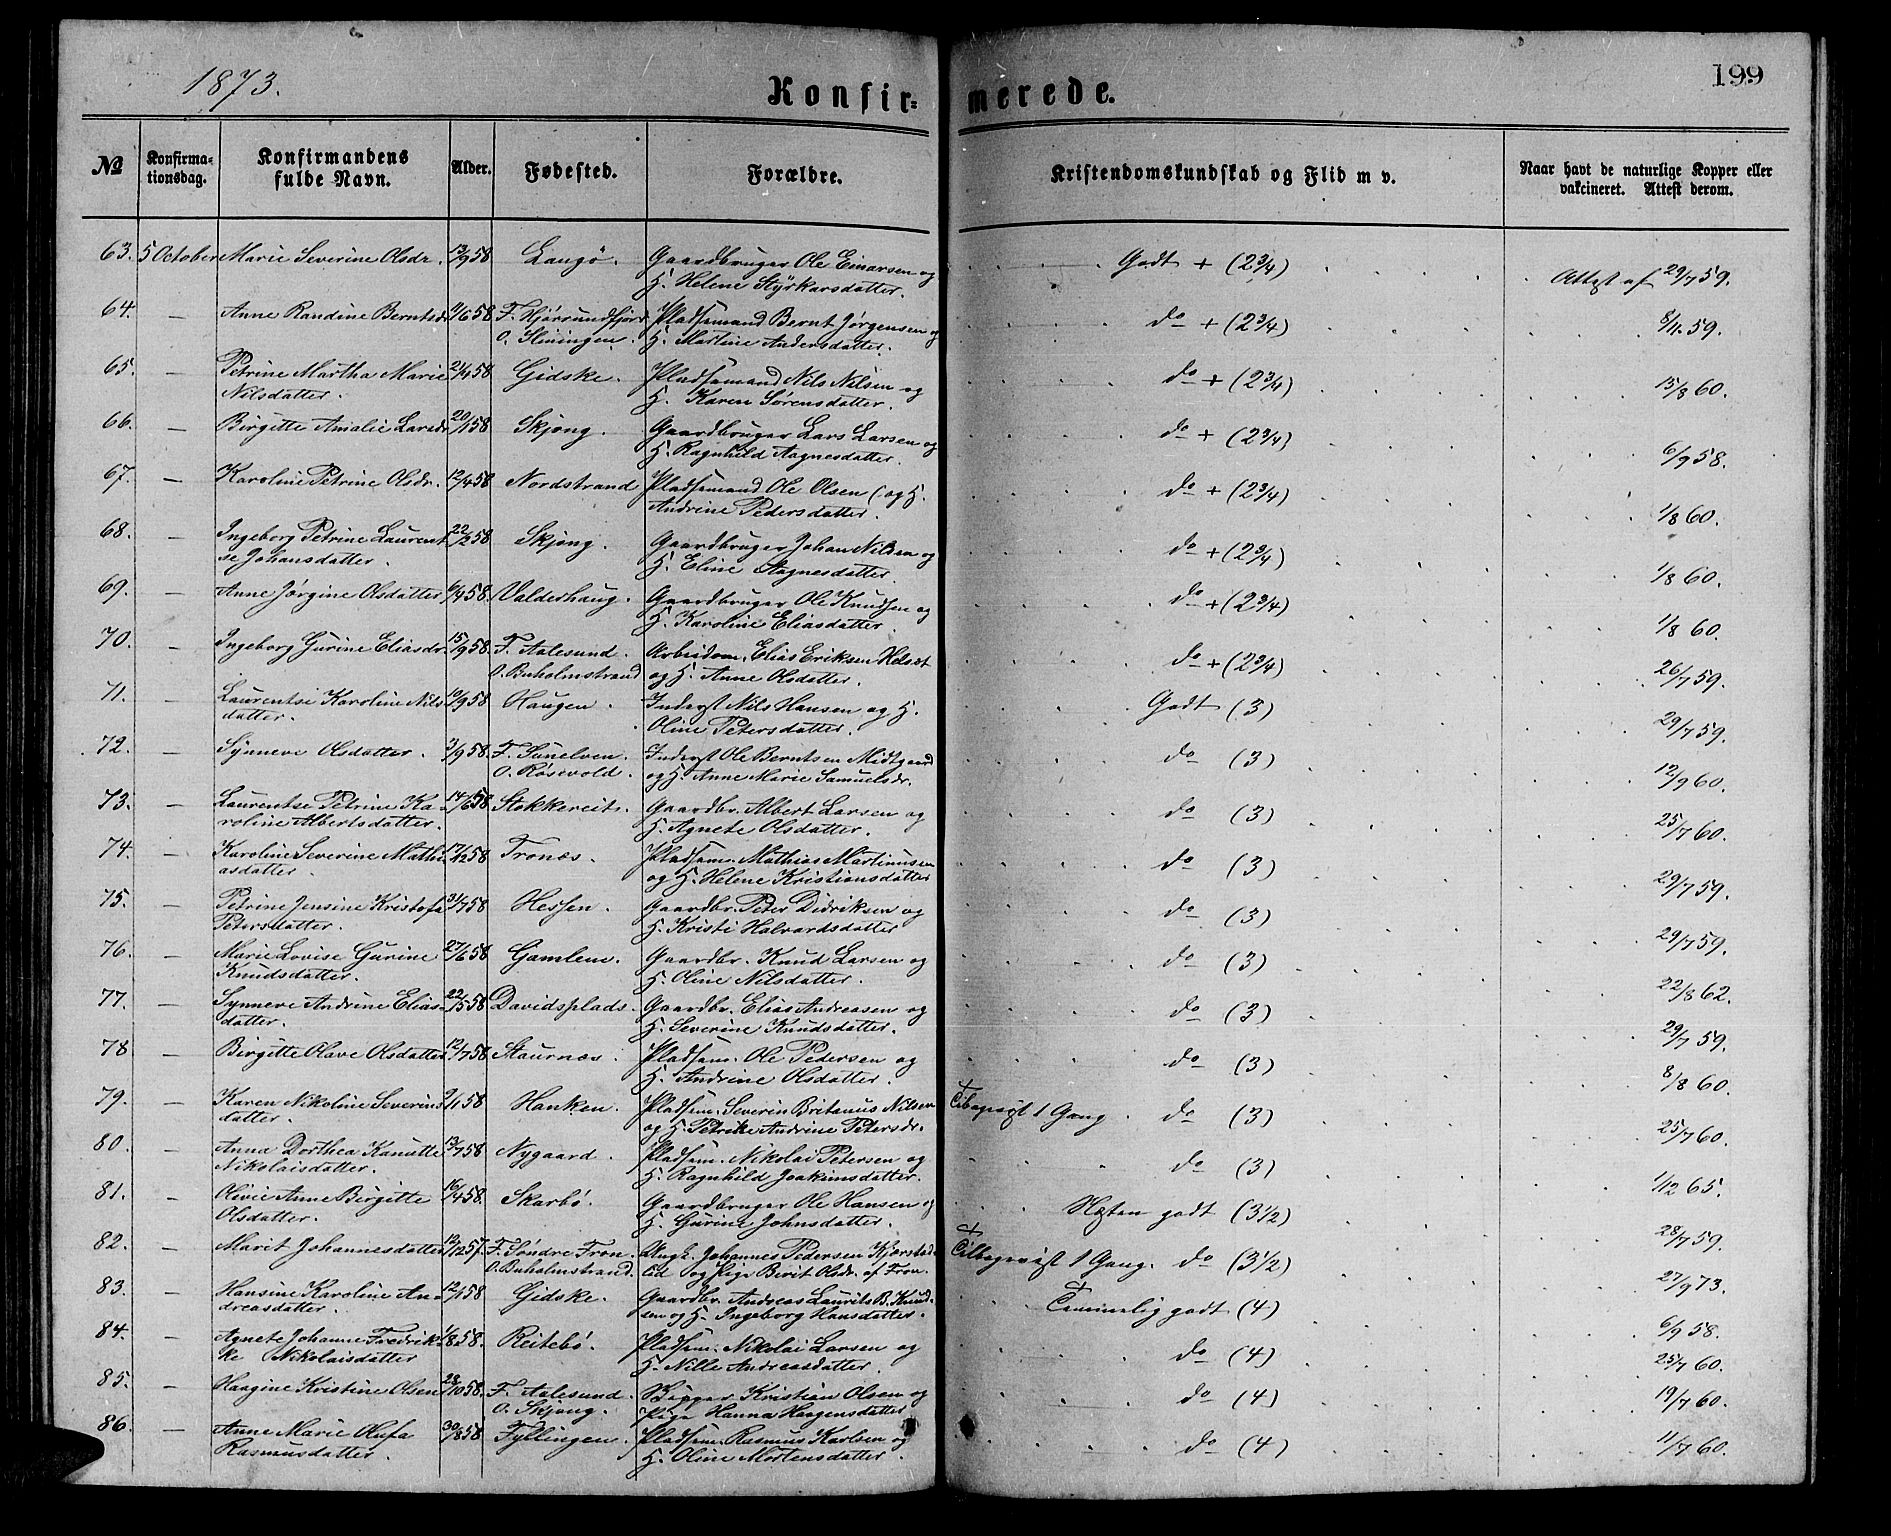 1873.
Konfirmerede.
199
No
Konfirmationsdag.
Konfirmandens fulde Navn.
Alder.
Fødested.
Forældre.
Kristendomskundskab og Flid m v.
Naar havt de naturlige Kopper eller vakcineret. Attest derom.
63. 5 October Marie Severine Olsdr. 13/9 58 Langö. Gaardbruger Ole Einarsen og Godt + (2 3/4) Attest af 29/7 59.
H. Helene Styrkarsdatter.
64. — Anne Randine Berntsdr 11/6 58 F. Hjørrundfjord Pladsemand Bernt Jørgensen og do + (2 3/4) 8/11 59.
O. H. Martine Andersdatter.
65. — Petrine Martha Marie 21/4 58 Gidske. Pladsemand Nils Nilsen og do + (2 3/4) 15/8 60.
Nilsdatter. H. Karen Sørensdatter.
66. — Birgitte Amalie Larsdr 20/1 58 Skjong. Gaardbruger Lars Larsen og do + (2 3/4) 6/9 58.
H. Ragnhild Aagnesdatter.
67. — Karoline Petrine Olsdr. 12/4 58 Nordstrand Pladsemand Ole Olsen (og H. do + (2 3/4) 1/8 60.
Andrine Pedersdatter.
68. — Ingeborg Petrine Laurent 22/2 58 Skjong. Gaardbruger Johan Nilsen og do + (2 3/4) 1/8 60.
se Johansdatter. H. Eline Aagnesdatter.
69. — Anne Jørgine Olsdatter 6/4 58. Valderhaug. Gaardbruger Ole Knudsen og do + (2 3/4) 1/8 60.
H. Karoline Eliasdatter.
70. — Ingeborg Gurine Eliasdr. 15/9 58. F. Aalesund. Arbeidsm. Elias Eriksen Helset do + (2 3/4) 26/7 59.
O. Buholmstrand og H. Anne Olsdatter.
71. — Laurentse Karoline Nils 10/9 58 Haugen. Inderst Nils Hansen og H. Godt (3) 29/7 59.
datter. Oline Petersdatter.
72. — Synneve Olsdatter. 3/9 58. F. Sunelven. Inderst Ole Berntsen Midtgaard do (3) 12/9 60.
O. Røsevold. og H. Anne Marie Samuelsdr.
73. — Laurentse Petrine Ka- 14/6 58. Stokkereit. Gaardbr. Albert Larsen og do (3) 25/7 60.
roline Albertsdatter. H. Agnete Olsdatter.
74. — Karoline Severine Mathi 17/12 58 Tronæs. Pladsem. Mathias Martinusen do (3) 29/7 59.
asdatter. og H. Helene Kristiansdatter
75. — Petrine Jensine Kristofa 31/7 58 Hessen. Gaardbr. Peter Didriksen og do (3) 29/7 59.
Petersdatter. H. Kristi Halvardsdatter
76. — Marie Lovise Gurine 27/6 58 Gamlem. Gaardbr. Knud Larsen og do (3) 22/8 62.
Knudsdatter. H. Oline Nilsdatter.
77. — Synneve Andrine Elias- 22/5 58 Davidsplads. Gaardbr. Elias Andreasen og do (3) 29/7 59.
datter. H. Severine Knudsdatter.
78 — Birgitte Olave Olsdatter 12/7 58 Staurnæs. Pladsem. Ole Pedersen og do (3) 8/8 60.
H. Andrine Olsdatter.
79. — Karen Nikoline Severins 9/1 58 Hanken. Pladsem. Severin Britanus Nilsen Tilbagevist 1 Gang. do (3) 25/7 60.
datter. og H. Petrike Andrine Petersdr.
80. — Anna Dorthea Kanutte 13/7 58 Nygaard. Pladsem. Nikolai Petersen og do (3) 1/12 65.
Nikolaisdatter. H. Ragnhild Joakimsdatter.
81. — Olivie Anne Birgitte 16/4 58. Skarbö. Gaardbruger Ole Hansen og Næsten godt (3 1/2) 28/7 59.
Olsdatter. H. Gurine Johnsdatter.
82. — Marit Johannesdatter 12/12 57. F. Söndre Fron. Ungk. Johannes Pedersen Kjørstad- Tilbagevist 1 Gang. do (3 1/2) 27/9 73.
O. Buholmstrand. og Pige Berit Olsdr. af Fron.
83. — Hansine Karoline An- 12/1 58 Gidske. Gaardbr. Andreas Laurits B. Knud- Temmelig godt (4) 6/9 58.
dreasdatter. sen og H. Ingeborg Hansdatter.
84. — Agnete Johanne Fredrik- 1/8 58. Reitebö. Pladsem. Nikolai Larsen og do (4) 25/7 60.
ke Nikolaisdatter H. Nille Andreasdatter.
85. — Haagine Kristine Olsen 28/10 58. F. Aalesund. Kristian Olsen og do (4) 19/7 60.
O. Skjong. Pige Hanna Haagensdatter
86. — Anne Marie Olufa 30/8 58 Fyllingen. Pladsem. Rasmus Karlsen og do (4) 11/7 60.
Rasmusdatter. H. Oline Mortensdatter.